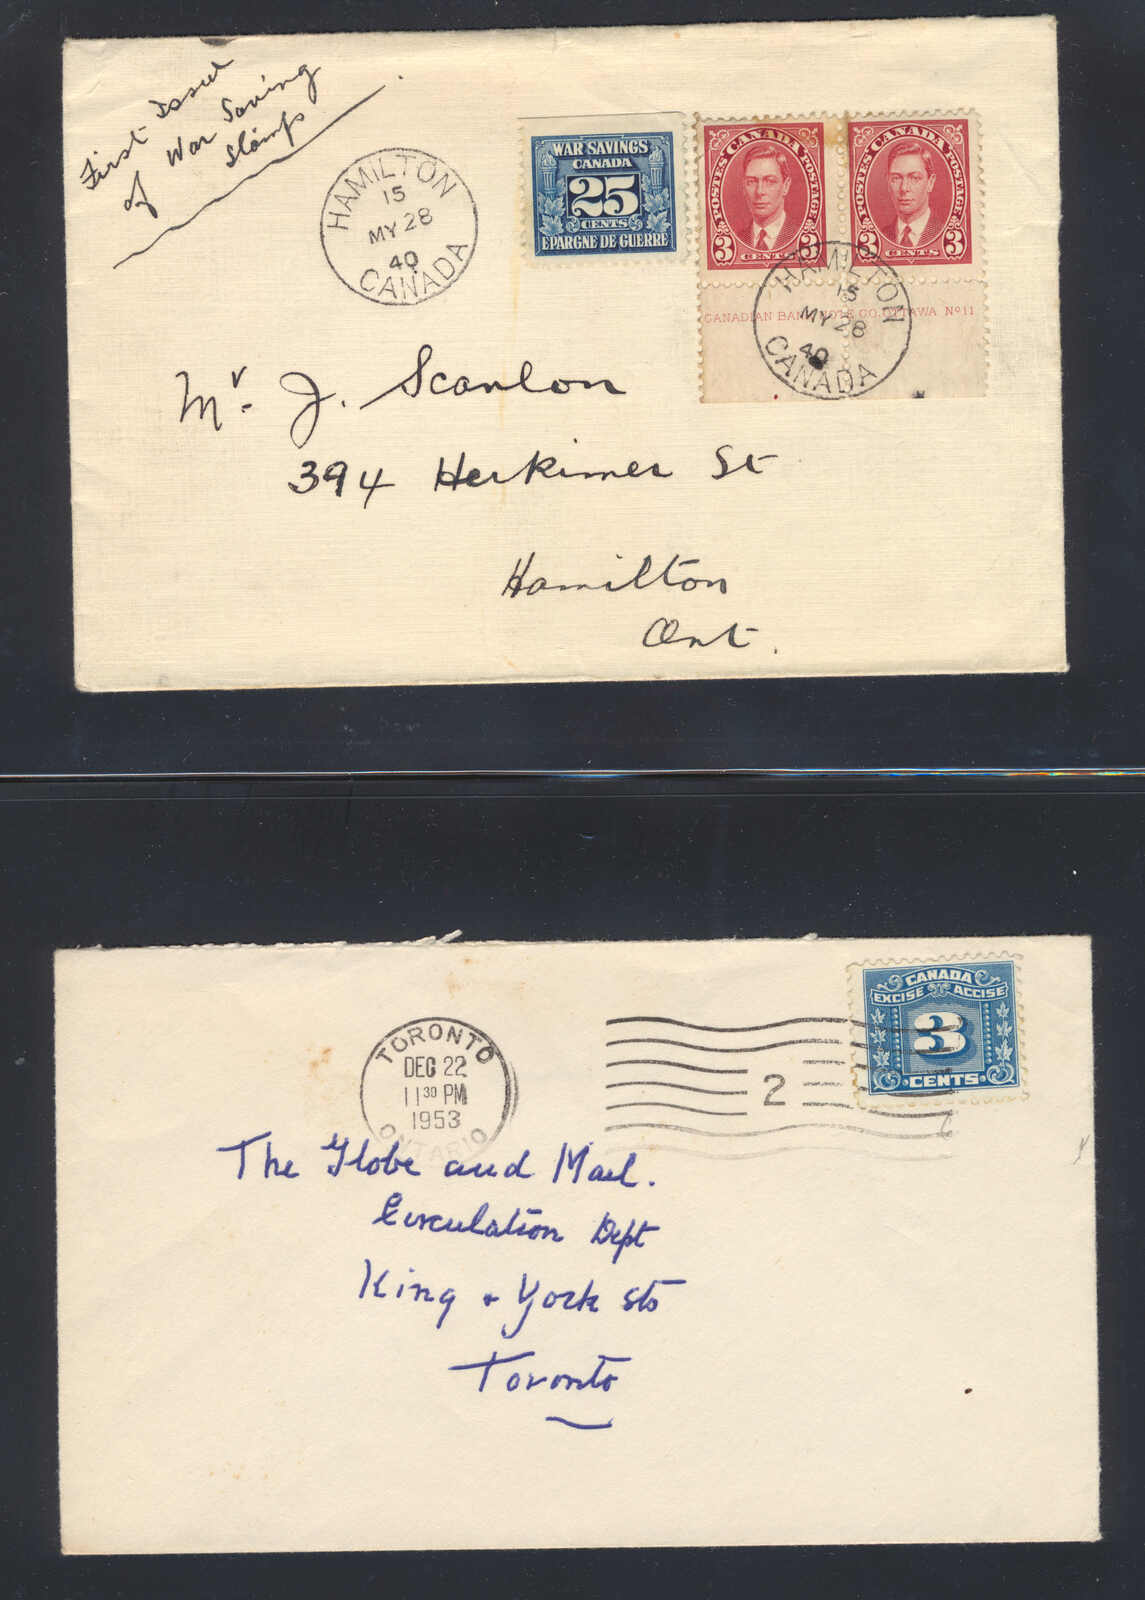 First Issue
of War Saving
Stamps
HAMILTON
15
MY 28
40
CANADA
WAR SAVINGS
CANADA
25
CENTS
EPARGNE DE GUERRE
POSTES CANADA POSTAGE
3 CENTS 3
POSTES CANADA POSTAGE
3 CENTS 3
CANADIAN BANK NOTE CO. OTTAWA No 11
HAMILTON
15
MY 28
40
CANADA
Mr. J. Scanlon
394 Herkimer St
Hamilton
Ont.
CANADA
EXCISE ACCISE
3
CENTS
TORONTO
DEC 22
11 30 PM
1953
ONTARIO
2
The Globe and Mail.
Circulation Dept
King + York Sts
Toronto